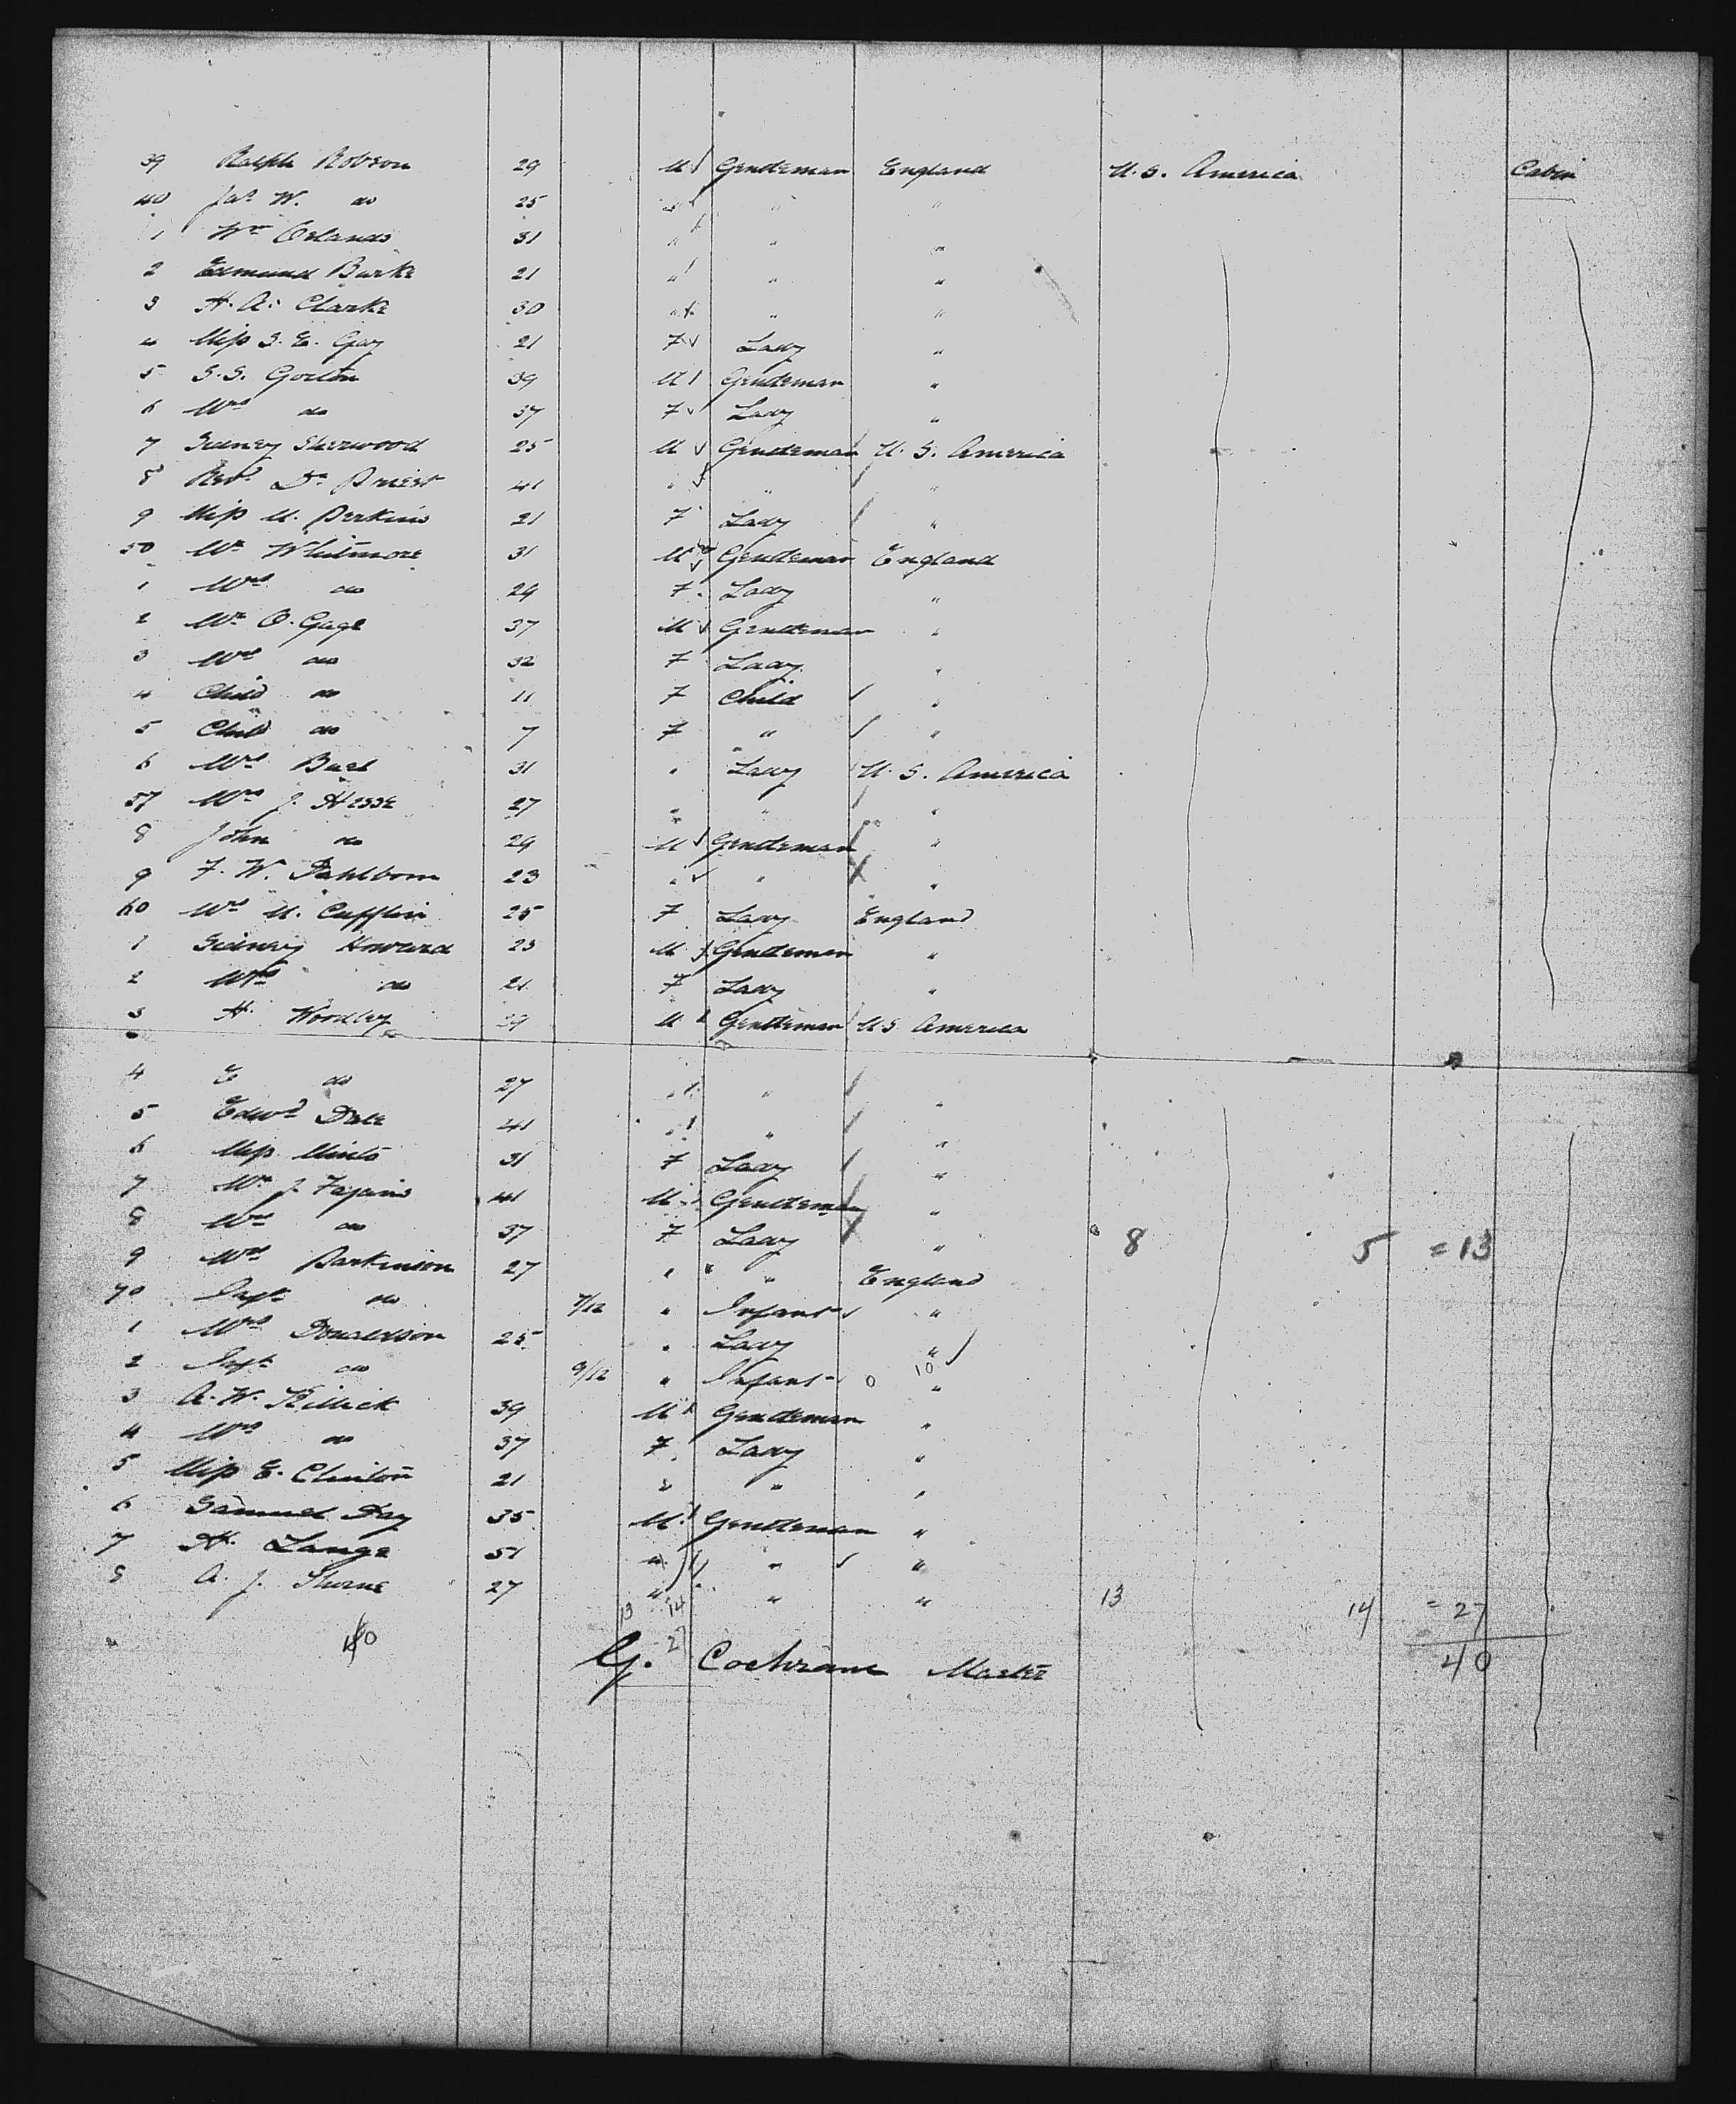 39 Ralph Robson 29 M Gentleman England U.S. America Cabin
40 Jas W. do 25 " " "
1 Wm Orlando 31 " " "
2 Edmund Burke 21 " " "
3 H. A. Clarke 30 " " "
4 Miss S. E. Gay 21 F Lady "
5 S. S. Gorton 39 M Gentleman "
6 Mrs do 37 F Lady "
7 Sidney Sherwood 25 M Gentleman U.S. America
8 Revd Dr Priest 41 " " "
9 Miss M. Perkins 21 F Lady "
50 Mr Whitmore 31 M Gentleman England
1 Mrs do 29 F Lady "
2 Mr O. Gage 37 M Gentleman "
3 Mrs do 32 F Lady "
4 Child do 11 F Child "
5 Child do 7 F " "
6 Mrs 31 " Lady U.S. America
57 Mrs J. Hesse 27 " " "
8 John do 29 M Gentleman "
9 F. W. Dahlbom 23 " " "
60 Mrs M. Cufflin 25 F Lady England
1 Sidney Howard 23 M Gentleman "
2 Mrs do 21 F Lady "
3 H. Woodley 29 M Gentleman U.S. America
4 E do 27 " " "
5 Edwd Dale 41 " " "
6 Miss Minto 31 F Lady "
7 Mr J. 41 M Gentleman "
8 Mrs do 37 F Lady " 8 5 = 13
9 Mrs Parkinson 27 " " England
70 Inft do 7/12 " Infant "
1 Mrs Donaldson 25 " Lady "
2 Inft do 9/12 " Infant 0 10 "
3 A. W. Killick 39 M Gentleman "
4 Mrs do 37 F Lady "
5 Miss E. Clinton 21 " " "
6 Samuel Day 35 M Gentleman "
7 H. Lange 51 " " "
8 A. J. Thorne 27 " " " 13 14 = 27
13 14
40 27 40
G. Cochrane Master